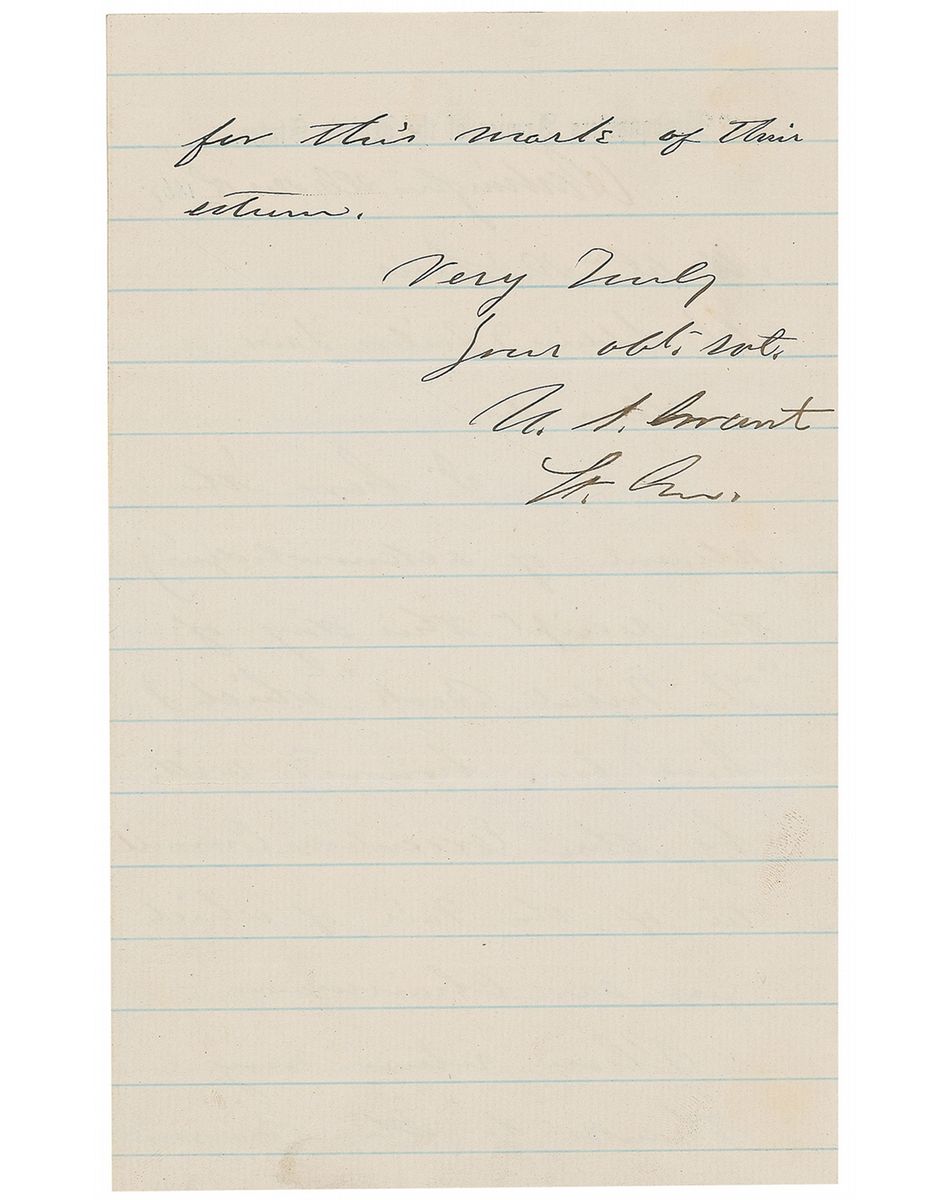 for this mark of their
esteem.
Very Truly
Your obt. svt.
U. S. Grant
Lt. Gen.